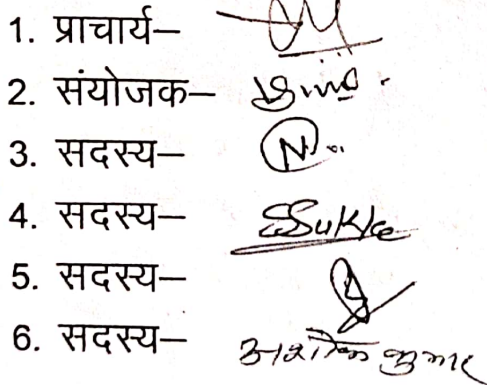 1. प्राचार्य–
2. संयोजक–
3. सदस्य– N
4. सदस्य–
5. सदस्य–
6. सदस्य– अशोक कुमार